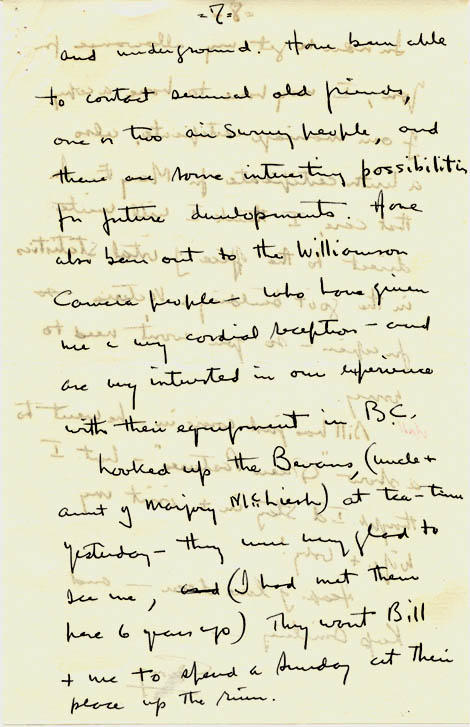 =7=
and underground. Have been able
to contact several old friends,
one or two air survey people, and
there are some interesting possibilities
for future developments. Have
also been out to the Williamson
Camera people - who have given
me a very cordial reception - and
are very interested in our experience
with their equipment in B.C.
Looked up the Bevans, (uncle +
aunt of Marjory) at tea-time
yesterday - they were very glad to
see me, and (I had met them
here 6 years ago) They want Bill
+ me to spend a Sunday at their
place up the river.